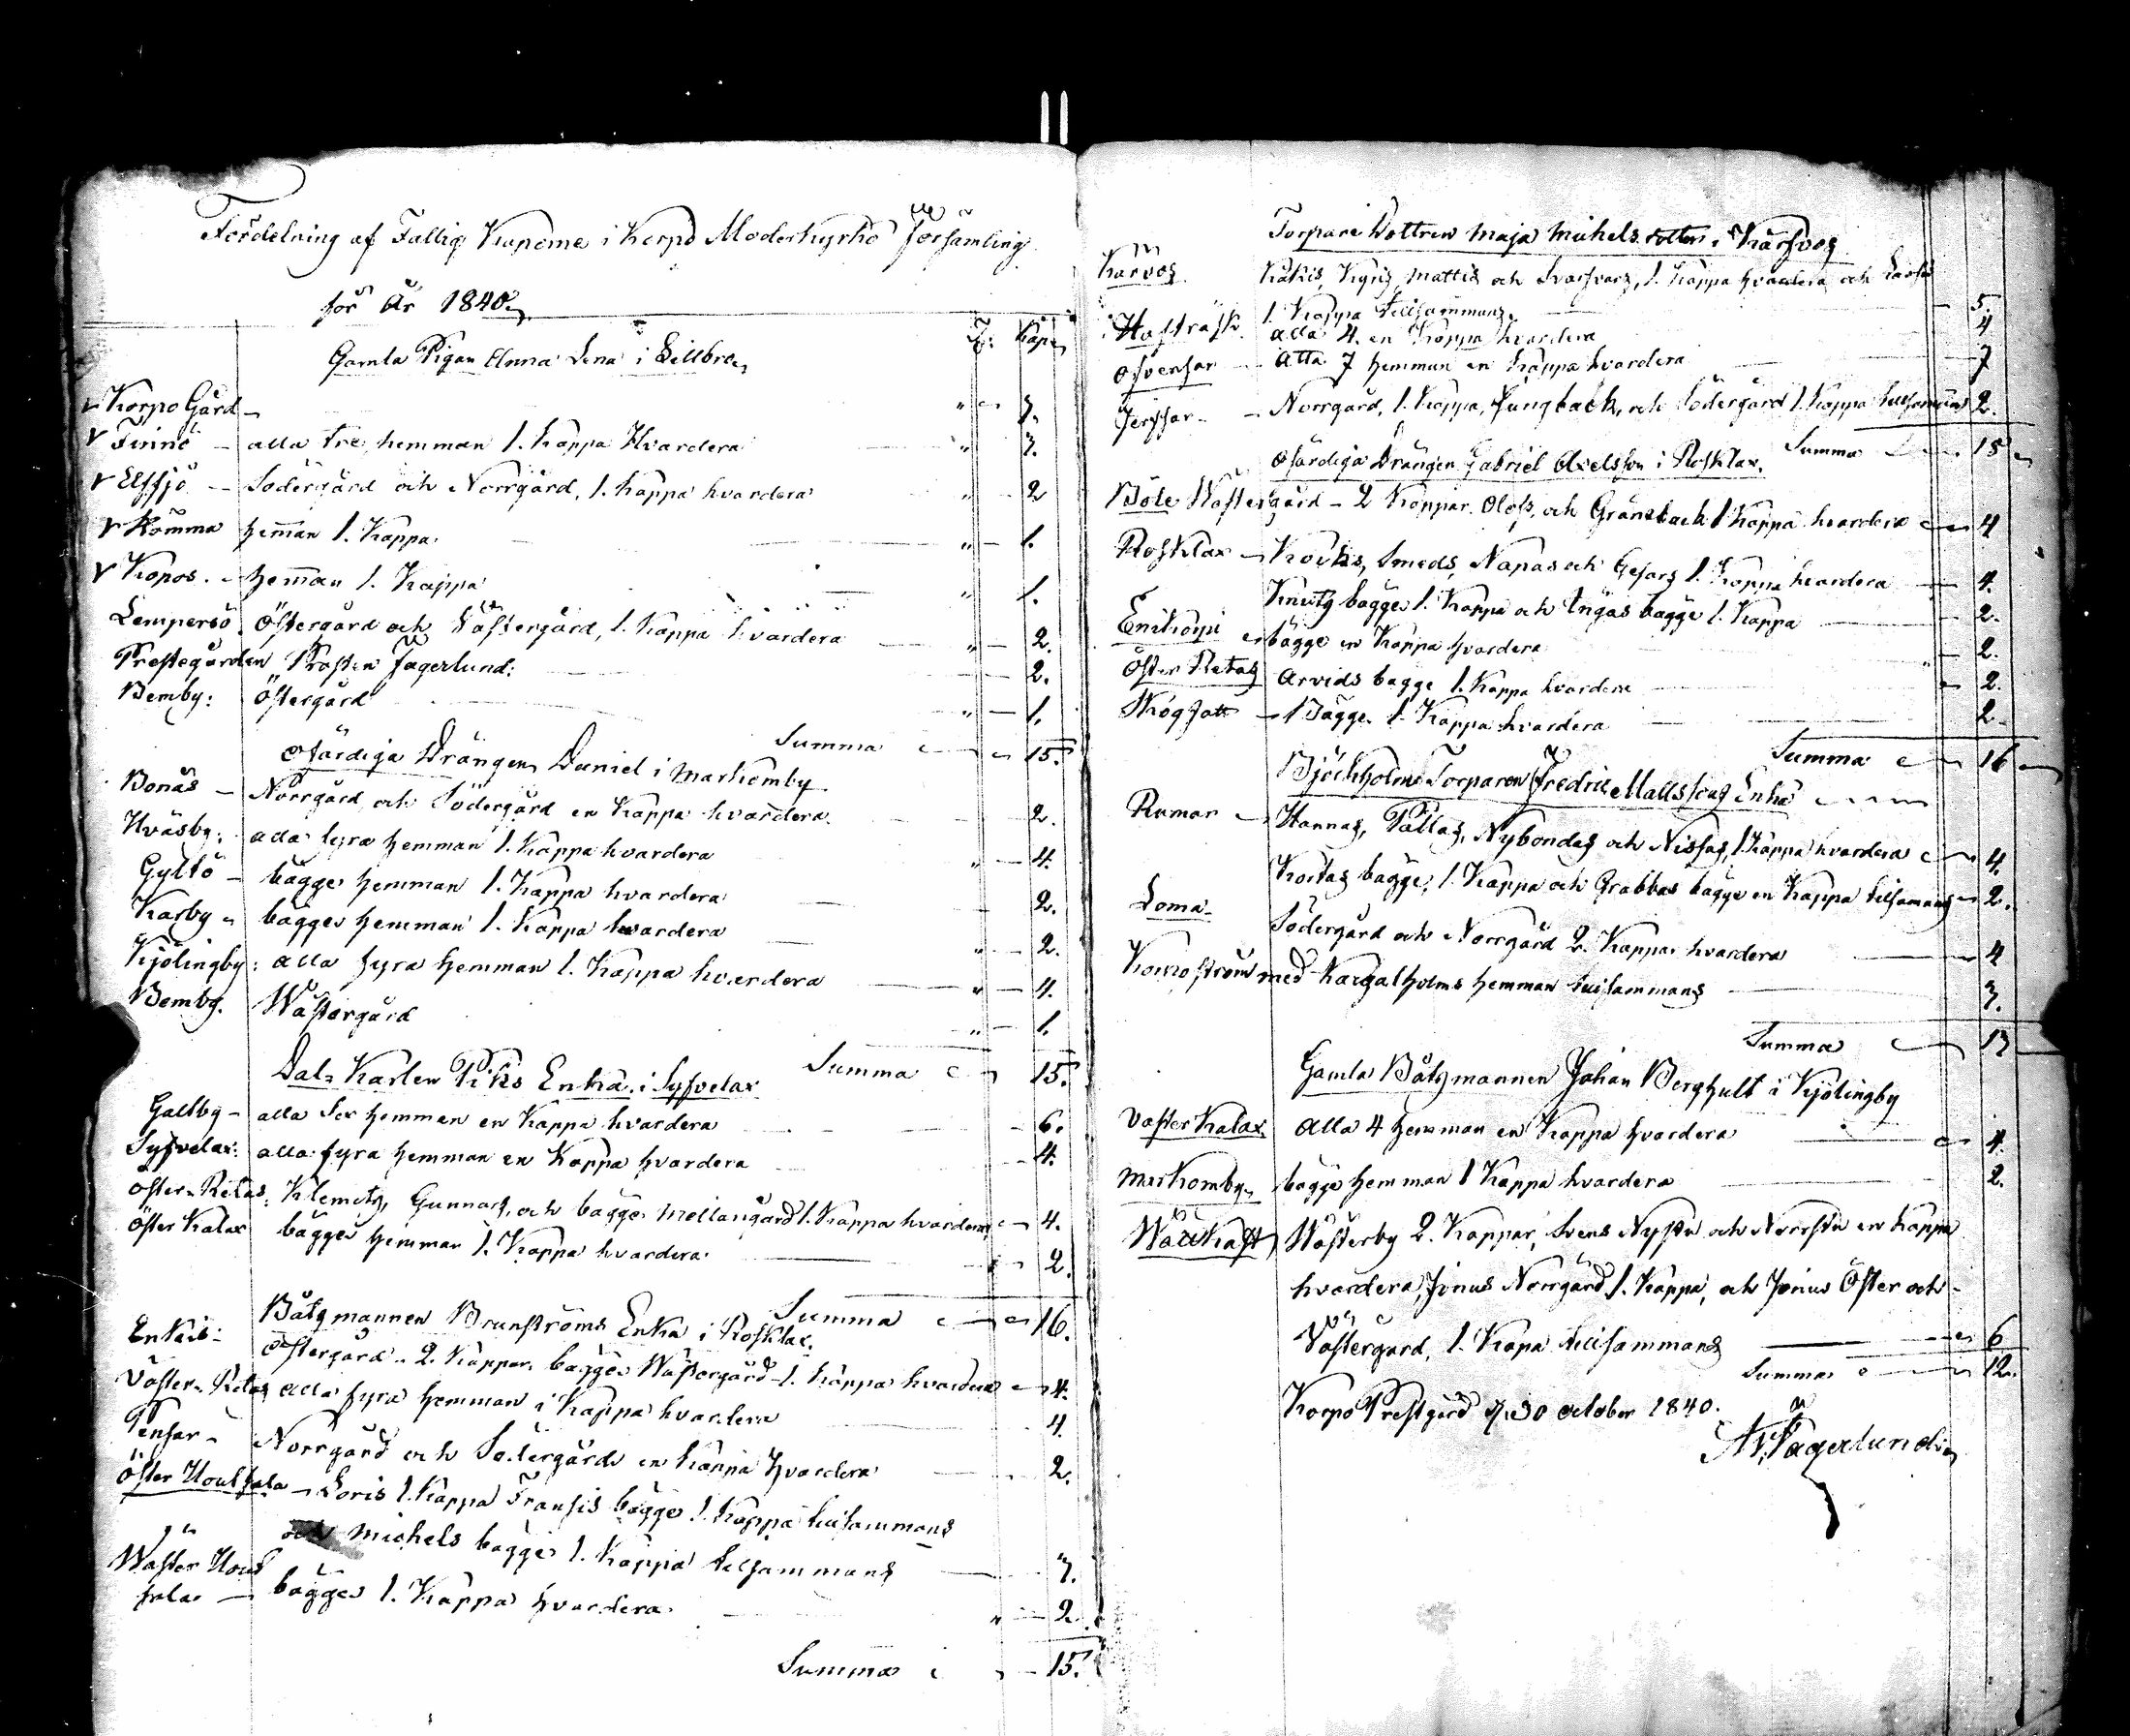 Fördelning af Fattig Kaperne i Korpo Moderkyrko Församling
för År 1840.
T: Kapp
Gamla Pigan Anna Lena i Sillbro
Korpo Gård - 3.
Finnö - alla tre hemman 1. Kappa Hvardera 3.
Elfsjö - Södergård och Norrgård, 1. kappa hvardera 2
Komma hemman 1. Kappa 1.
Kopos. - hemman 1. Kappa 1.
Lempersö. Östergård och Västergård, 1. kappa hvardera 2.
Prestegården Prosten Jagerlund: 2.
Bemby: Östergård 1.
Summa 15.
Ofärdiga Drängen Daniel i Markomby
Bonäs - Norrgård och Södergård en kappa hvardera 2.
Hväsby: alla fyra hemman 1. Kappa hvardera 4.
Gyltö - bägge hemman 1. Kappa hvardera 2.
Karby - bägge hemman 1. Kappa hvardera 2.
Kjölingby: alla fyra hemman 1. Kappa hvardera 4.
Bemby. Wästergård 1.
Summa 15.
Dal-Karlen Enka i Syfvelax
Galtby - alla Sex hemman en Kappa hvardera 6.
Syfvelax: alla fyra hemman en Kappa hvardera 4.
Öster-Retas: Klemets, Gunnars, och bägge Mellangård 1. Kappa hvardera 4.
Öster Kalax bägge hemman 1. Kappa hvardera 2.
Summa 16.
Båtzmannen Brunströms Enka i Rosklax.
Enkis: Östergård - 2. Kappar, bägge Wästergård - 1. Kappa hvardera 4.
Väster-Retas alla fyra hemman 1 Kappa hvardera 4.
Pensar - Norrgård och Södergård en kappa hvardera 2.
Öster Houtskala - Loris 1. Kappa Fransis bägge 1. Kappa tillsammans
och Michels bägge 1. Kappa tilsammans 3.
Wäster Hout
skala - bägge 1. Kappa hvardera 2.
Summa 15.
Torpare Dottren Maja Michels dotter i Kårfvos
Kårvos Kakis, Mattis och Svarfvars, 1. Kappa hvardera och
1. Kappa tillsammans 5.
Hafträsk. alla 4. en Kappa hvardera 4
Ofvensor - Alla 7 hemman en Kappa hvardera 7
Jersor - Norrgård, 1. Kappa, Jungback, och Södergård 1. Kappa tillsammans 2.
Summa 18
Ofärdiga Drängen Gabriel Axelsson i Rosklax.
Böle Wästergård - 2 Kappar. Olofs, och Gränsback 1 Kappa hvardera 4
Rosklax - Kocks, Smeds, Napas och Gesars 1. Kappa hvardera 4.
Knuts bägge 1. Kappa och Ingas bägge 1. Kappa 2.
Enikörpi bägge en Kappa hvardera 2.
Öster Retas Arvids bägge 1. Kappa hvardera 2.
Skogsatt - Bägge 1. Kappa hvardera 2.
Summa 16
Björkholms Torparen Fredric Mattssons Enka
Rumar - Hannas, Pällas, Nybondas och Nissas, 1. Kappa hvardera 4.
Kortas bägge, 1. Kappa och Grabbas bägge en Kappa tilsamans 2.
Loma - Södergård och Norrgård 2. Kappar hvardera 4
Korpoström med Kargalholms hemman tillsammans 3.
Summa 13
Gamla Båtzmannen Johan Berghult i Kjölingby
Väster Kalax Alla 4 hemman en Kappa hvardera 4.
Markomby - bägge hemman 1 Kappa hvardera 2.
Wattkast Wästerby 2. Kappar, Svens Nystu och Norrstu en kappa
hvardera, Jonus Norrgård 1. Kappa, och Jonus Öster och
Västergård, 1. Kappa tillsammans 6
Summa 12.
Korpo Prestgård d. 30 October 1840.
Jagerlund